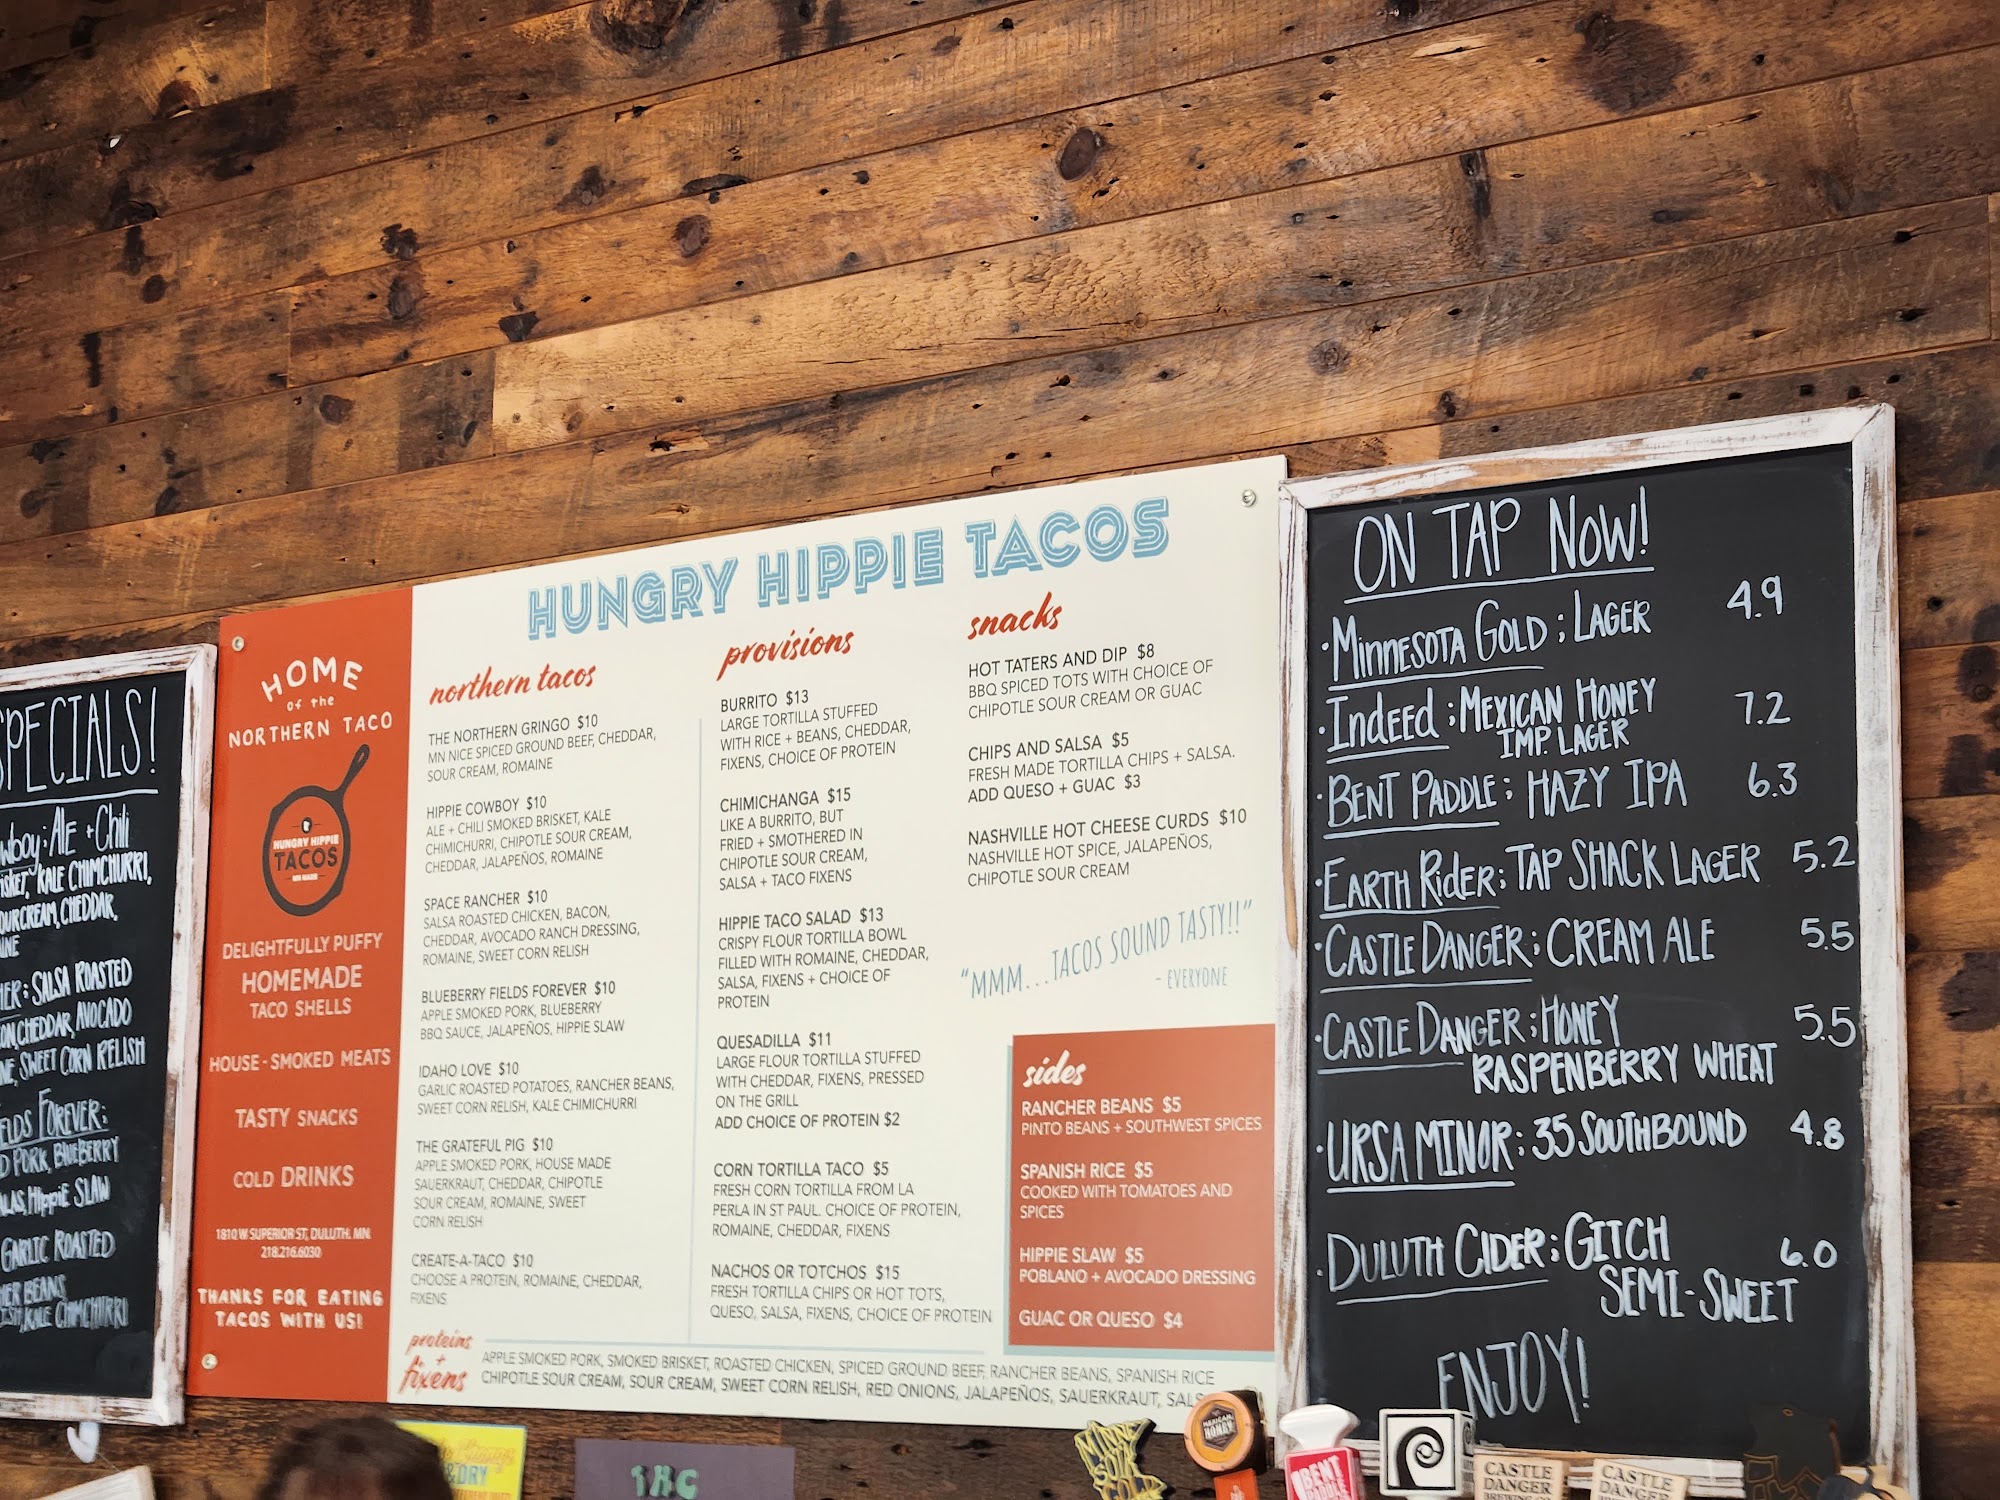 SPECIALS!
ALE + Chili
KALE CHIMICHURRI,
SOUR CREAM, CHEDDAR,
SALSA ROASTED
CHEDDAR, AVOCADO
SWEET CORN RELISH
FOREVER:
PORK, BLUEBERRY
HippiE SLAW
GARLIC ROASTED
BEANS
KALE CHIMICHURRI
HOME
of the
NORTHERN TACO
HUNGRY HIPPIE
TACOS
DELIGHTFULLY PUFFY
HOMEMADE
TACO SHELLS
HOUSE-SMOKED MEATS
TASTY SNACKS
COLD DRINKS
1810 W SUPERIOR ST, DULUTH, MN
218.216.6030
THANKS FOR EATING
TACOS WITH US!
HUNGRY HIPPIE TACOS
northern tacos
THE NORTHERN GRINGO $10
MN NICE SPICED GROUND BEEF, CHEDDAR,
SOUR CREAM, ROMAINE
HIPPIE COWBOY $10
ALE + CHILI SMOKED BRISKET, KALE
CHIMICHURRI, CHIPOTLE SOUR CREAM,
CHEDDAR, JALAPEÑOS, ROMAINE
SPACE RANCHER $10
SALSA ROASTED CHICKEN, BACON,
CHEDDAR, AVOCADO RANCH DRESSING,
ROMAINE, SWEET CORN RELISH
BLUEBERRY FIELDS FOREVER $10
APPLE SMOKED PORK, BLUEBERRY
BBQ SAUCE, JALAPEÑOS, HIPPIE SLAW
IDAHO LOVE $10
GARLIC ROASTED POTATOES, RANCHER BEANS,
SWEET CORN RELISH, KALE CHIMICHURRI
THE GRATEFUL PIG $10
APPLE SMOKED PORK, HOUSE MADE
SAUERKRAUT, CHEDDAR, CHIPOTLE
SOUR CREAM, ROMAINE, SWEET
CORN RELISH
CREATE-A-TACO $10
CHOOSE A PROTEIN, ROMAINE, CHEDDAR,
FIXENS
provisions
BURRITO $13
LARGE TORTILLA STUFFED
WITH RICE + BEANS, CHEDDAR,
FIXENS, CHOICE OF PROTEIN
CHIMICHANGA $15
LIKE A BURRITO, BUT
FRIED + SMOTHERED IN
CHIPOTLE SOUR CREAM,
SALSA + TACO FIXENS
HIPPIE TACO SALAD $13
CRISPY FLOUR TORTILLA BOWL
FILLED WITH ROMAINE, CHEDDAR,
SALSA, FIXENS + CHOICE OF
PROTEIN
QUESADILLA $11
LARGE FLOUR TORTILLA STUFFED
WITH CHEDDAR, FIXENS, PRESSED
ON THE GRILL
ADD CHOICE OF PROTEIN $2
CORN TORTILLA TACO $5
FRESH CORN TORTILLA FROM LA
PERLA IN ST PAUL. CHOICE OF PROTEIN,
ROMAINE, CHEDDAR, FIXENS
NACHOS OR TOTCHOS $15
FRESH TORTILLA CHIPS OR HOT TOTS,
QUESO, SALSA, FIXENS, CHOICE OF PROTEIN
snacks
HOT TATERS AND DIP $8
BBQ SPICED TOTS WITH CHOICE OF
CHIPOTLE SOUR CREAM OR GUAC
CHIPS AND SALSA $5
FRESH MADE TORTILLA CHIPS + SALSA.
ADD QUESO + GUAC $3
NASHVILLE HOT CHEESE CURDS $10
NASHVILLE HOT SPICE, JALAPEÑOS,
CHIPOTLE SOUR CREAM
"MMM...TACOS SOUND TASTY!!"
- EVERYONE
sides
RANCHER BEANS $5
PINTO BEANS + SOUTHWEST SPICES
SPANISH RICE $5
COOKED WITH TOMATOES AND
SPICES
HIPPIE SLAW $5
POBLANO + AVOCADO DRESSING
GUAC OR QUESO $4
proteins
+
fixens
APPLE SMOKED PORK, SMOKED BRISKET, ROASTED CHICKEN, SPICED GROUND BEEF, RANCHER BEANS, SPANISH RICE
CHIPOTLE SOUR CREAM, SOUR CREAM, SWEET CORN RELISH, RED ONIONS, JALAPEÑOS, SAUERKRAUT, SALS
ON TAP NOW!
•MINNESOTA GOLD; LAGER 4.9
•Indeed; MEXICAN HONEY 7.2
IMP. LAGER
•BENT PADDLE; HAZY IPA 6.3
•EARTH RIDER; TAP SHACK LAGER 5.2
•CASTLE DANGER; CREAM ALE 5.5
•CASTLE DANGER; HONEY 5.5
RASPENBERRY WHEAT
•URSA MINOR; 35 SOUTHBOUND 4.8
•DULUTH CIDER; GITCH 6.0
SEMI-SWEET
ENJOY!
&DRY
THC
MINNE
SOTA
GOLD
MEXICAN
HONEY
BENT
CASTLE
DANGER
CASTLE
DANGER